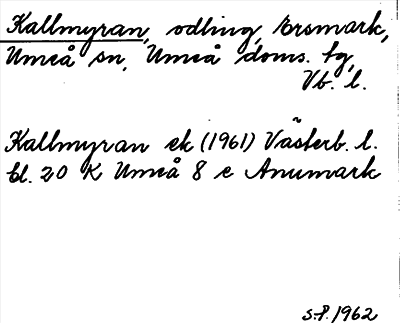 Kallmyran, odling, Ersmark,
Umeå sn, Umeå doms. tg,
Vb. l.
Kallmyran ek (1961) Västerb. l.
bl. 20 K Umeå 8 e Anumark
S.P. 1962